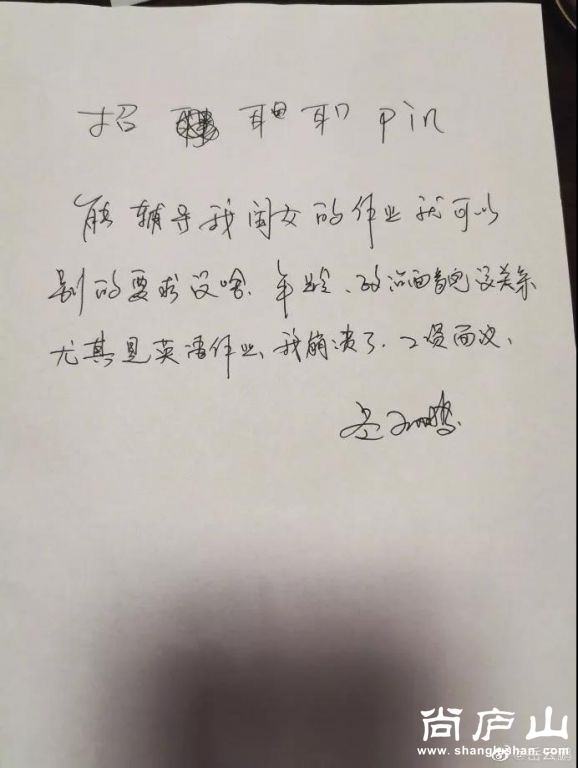 招 职 pin
能辅导我闺女的作业就可以
别的要求没啥、年龄、政治面貌没关系
尤其是英语作业、我崩溃了、工资面议、
岳云鹏
尚庐山
www.shanglushan.com
@岳云鹏